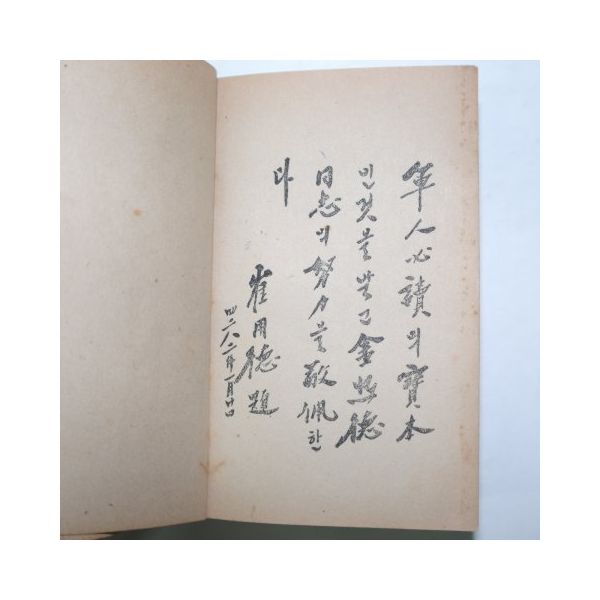 軍人必讀의寶本
인것을믿고金 德
同志의努力을敬佩한
다
崔用德題
四二八二年一月廿日